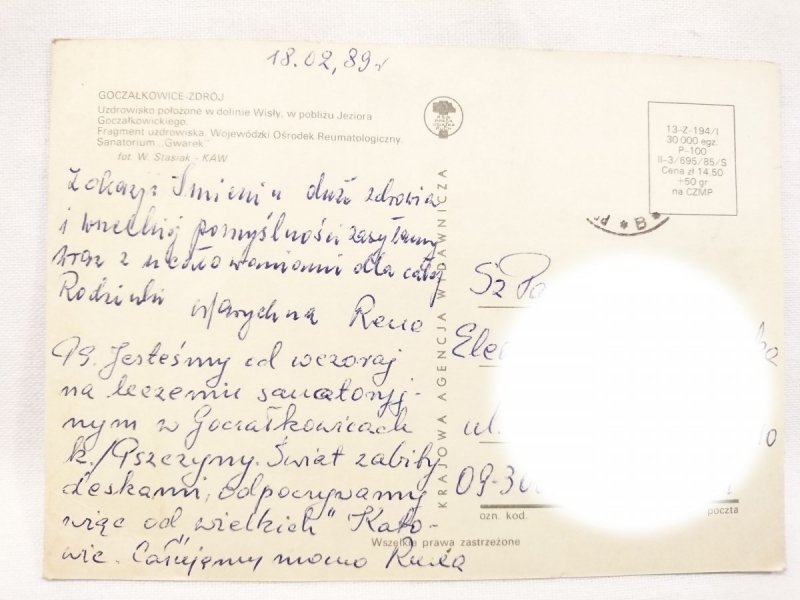 18.02,89r
GOCZAŁKOWICE-ZDRÓJ
Uzdrowisko położone w dolinie Wisły, w pobliżu Jeziora
Goczałkowickiego.
Fragment uzdrowiska. Wojewódzki Ośrodek Reumatologiczny.
Sanatorium „Gwarek"
fot. W. Stasiak - KAW
Z okazji Imienin dużo zdrowia
i wszelkiej pomyślności zasyłamy
wraz z ucałowaniami dla całej
Rodzinki
PS. Jesteśmy od wczoraj
na leczeniu sanatoryj-
nym w Goczałkowicach
k./Pszczyny. Świat zabity
deskami, odpoczywamy
więc od wielkich" Kato-
wic. Całujemy mocno
KRAJOWA AGENCJA WYDAWNICZA
13-Z-194/I
30 000 egz.
P-100
II-3/695/85/S
Cena zł 14,50
+50 gr
na CZMP
B
Sz
Ele
ul.
09-30
ozn. kod.
poczta
Wszelkie prawa zastrzeżone